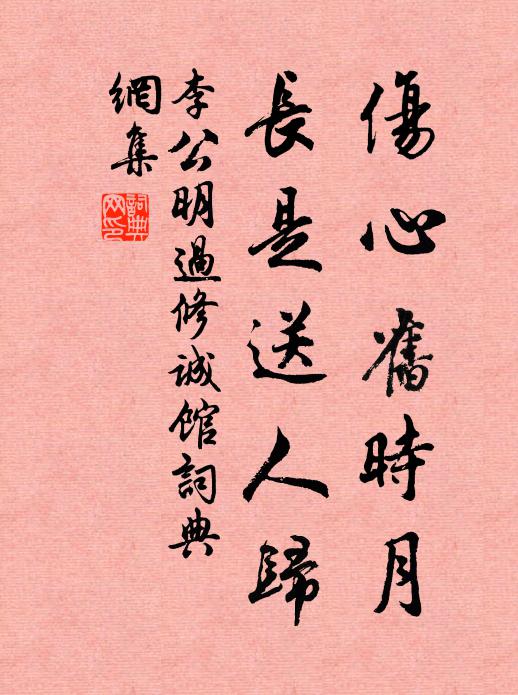 傷心舊時月
長是送人歸
李公明過修誠館詞典
網集
詞典網印